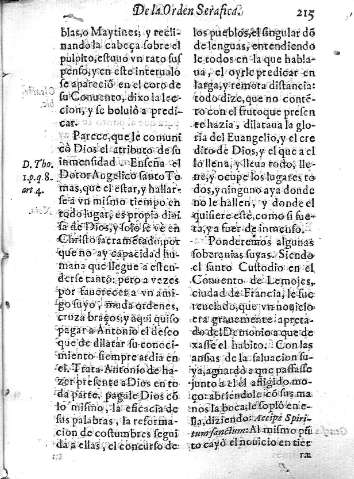 De la Orden Serafica.
215
blas, o Maytines; y recli-
nando la cabeça sobre el
pulpito, estuuo vn rato sus
penso, y en este interualo
se apareciò en el coro de
su Conuento, dixo la lec
cion, y se boluiò a predi-
car.
Parece, que le comuni
cò Dios el atributo de su
inmensidad. Enseña el
D. Tho.
1.p.q 8.
art 4.
Dotor Angelico santo To
mas, que el estar, y hallar-
se a vn mismo tiempo en
todo lugar, es propia diui
sa de Dios, y solo se vè en
Christo sacramẽtado: por
que no ay capacidad hu-
mana que llegue a esten-
derse tanto: pero a vezes
por fauorecer a vn ami-
go suyo, muda ordenes,
cruza braços; y aqui quiso
pagar a Antonio el deseo
que de dilatar su conoci-
miento siempre ardia en
el. Trata Antonio de ha-
zer presente a Dios en to
da parte, pagale Dios cõ
lo mismo, la eficacia de
sus palabras, la reforma-
cion de costumbres segui
da a ellas, el concurso de
los pueblos, el singular dõ
de lenguas, entendiendo
le todos en la que habla-
ua, el oyrle predicar en
larga, y remota distancia:
todo dize, que no contẽ-
to con el fruto que presen
te hazia, dilataua la glo-
ria del Euangelio, y el cre
dito de Dios, y el que a el
lo llena, y lleua todo, lle-
ne, y ocupe los lugares to
dos, y ninguno aya donde
no le hallen, y donde el
quisiere estè, como si fue-
ra, y a fuer de inmenso.
Ponderemos algunas
soberanias suyas. Siendo
el santo Custodio en el
Conuento de Lemojes,
ciudad de Francia, le fue
reuelado, que vn nouicio
era grauemente apreta-
do del Demonio a que de
xasse el habito. Con las
ansias de la saluacion su-
ya, aguardò a que passasse
junto a el el afligido mo-
ço: abriendole cõ sus ma
nos la boca, le soplò en e-
lla, diziendo: Accipe Spiri-
tum sanctum: Al mismo pũ
to cayò el nouicio en tier
ra;